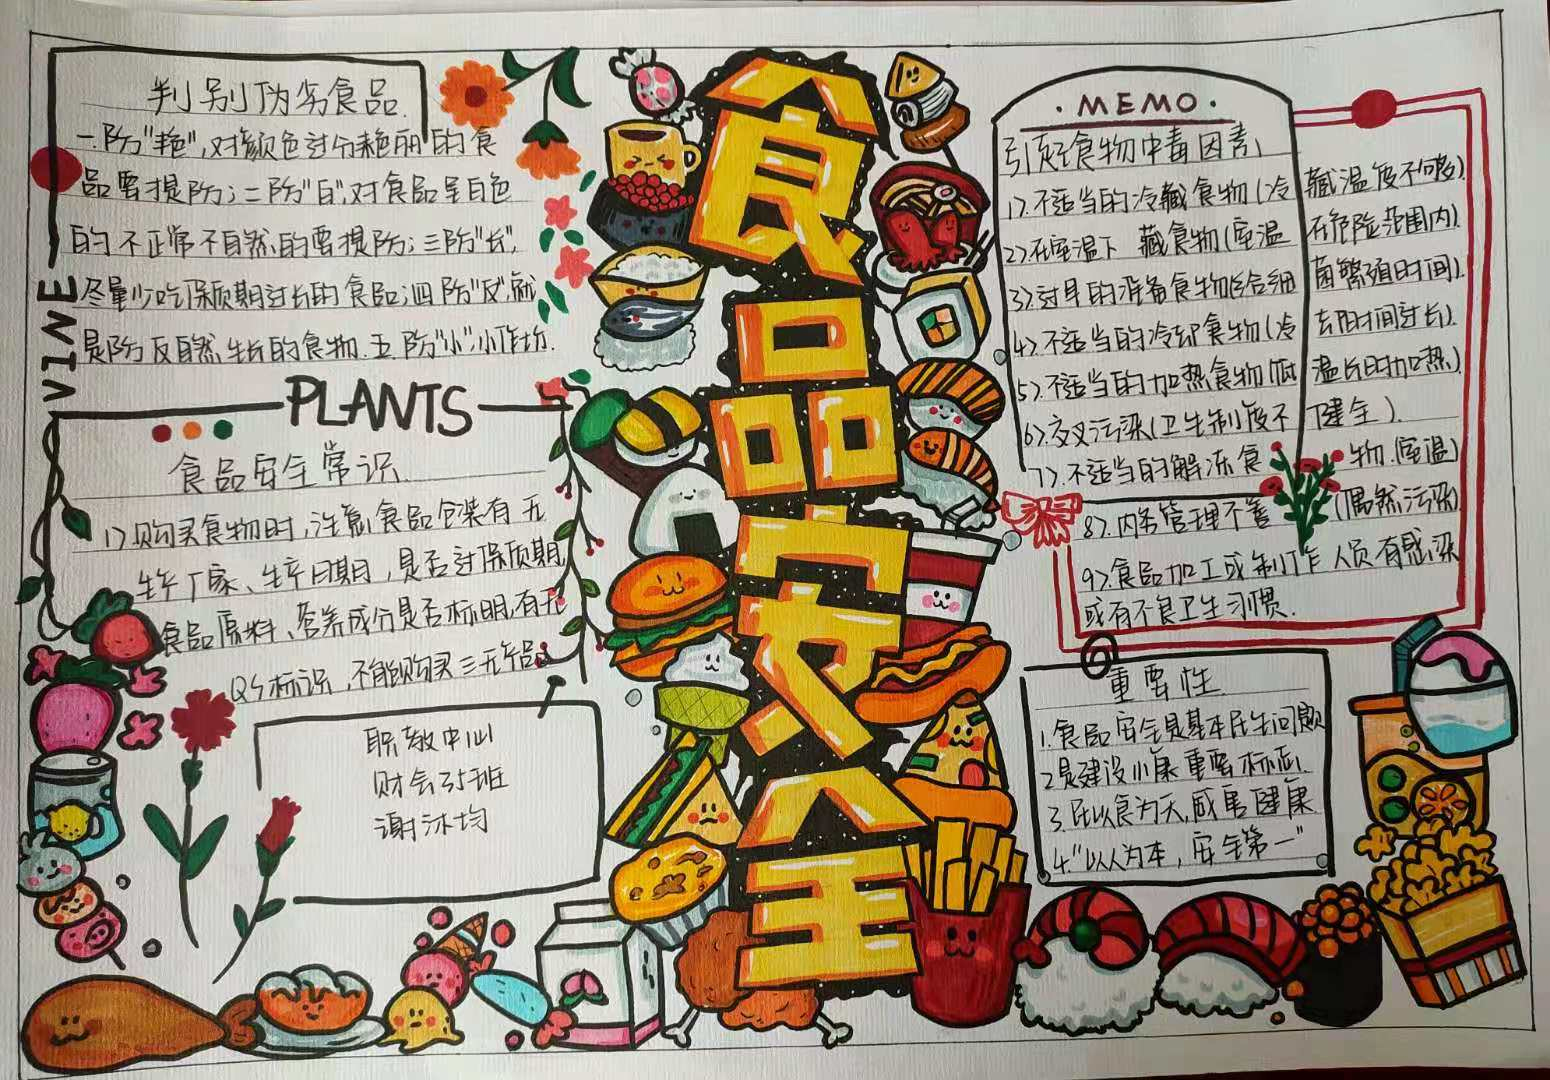 判别伪劣食品
一.防"艳",对颜色过分艳丽的食
品要提防;二防"白",对食品呈白色
的不正常不自然的要提防;三防"长",
尽量少吃保质期过长的食品;四防"反",就
是防反自然生长的食物.五防"小"小作坊.
VINE
PLANTS
食品安全常识
1).购买食物时,注意食品包装有无
生产厂家、生产日期,是否过保质期
食品原料、营养成分是否标明,有无
QS标识,不能购买三无产品
职教中心
财会31班
谢沐均
食品安全
·MEMO·
引起食物中毒因素
1).不适当的冷藏食物(冷藏温度不够)
2).在室温下 藏食物(室温在危险范围内).
3).过早的准备食物(给细菌繁殖时间).
4).不适当的冷却食物(冷去阳时间过长).
5).不适当的加热食物(低温长时加热)
6).交叉污染(卫生制度不健全).
7).不适当的解冻食物.(室温)
8).内务管理不善(偶然污染)
9).食品加工或制作人员有感染
或有不良卫生习惯.
重要性
1.食品安全是基本民生问题
2.是建设小康重要标志.
3.民以食为天,威害健康
4."以人为本,安全第一"